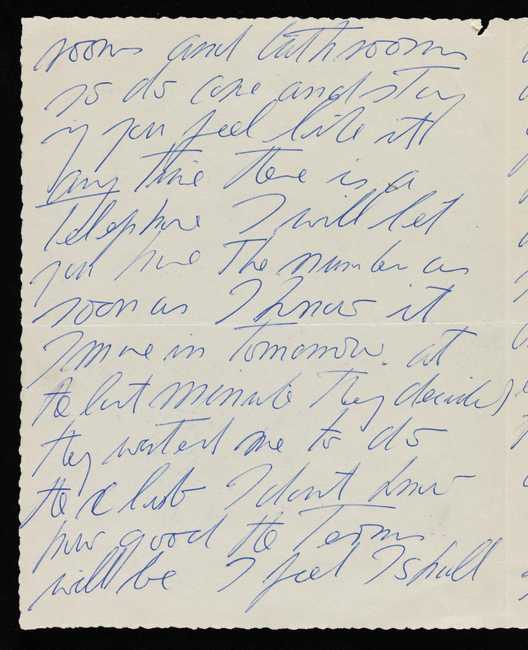 rooms and bathrooms
so do come and stay
if you feel like it
any time there is a
Telephone I will let
you have the number as
soon as I know it
I move in tomorrow. at
the last minute they decided
they wanted me to do
the I dont know
how good the Terms
will be I feel I shall